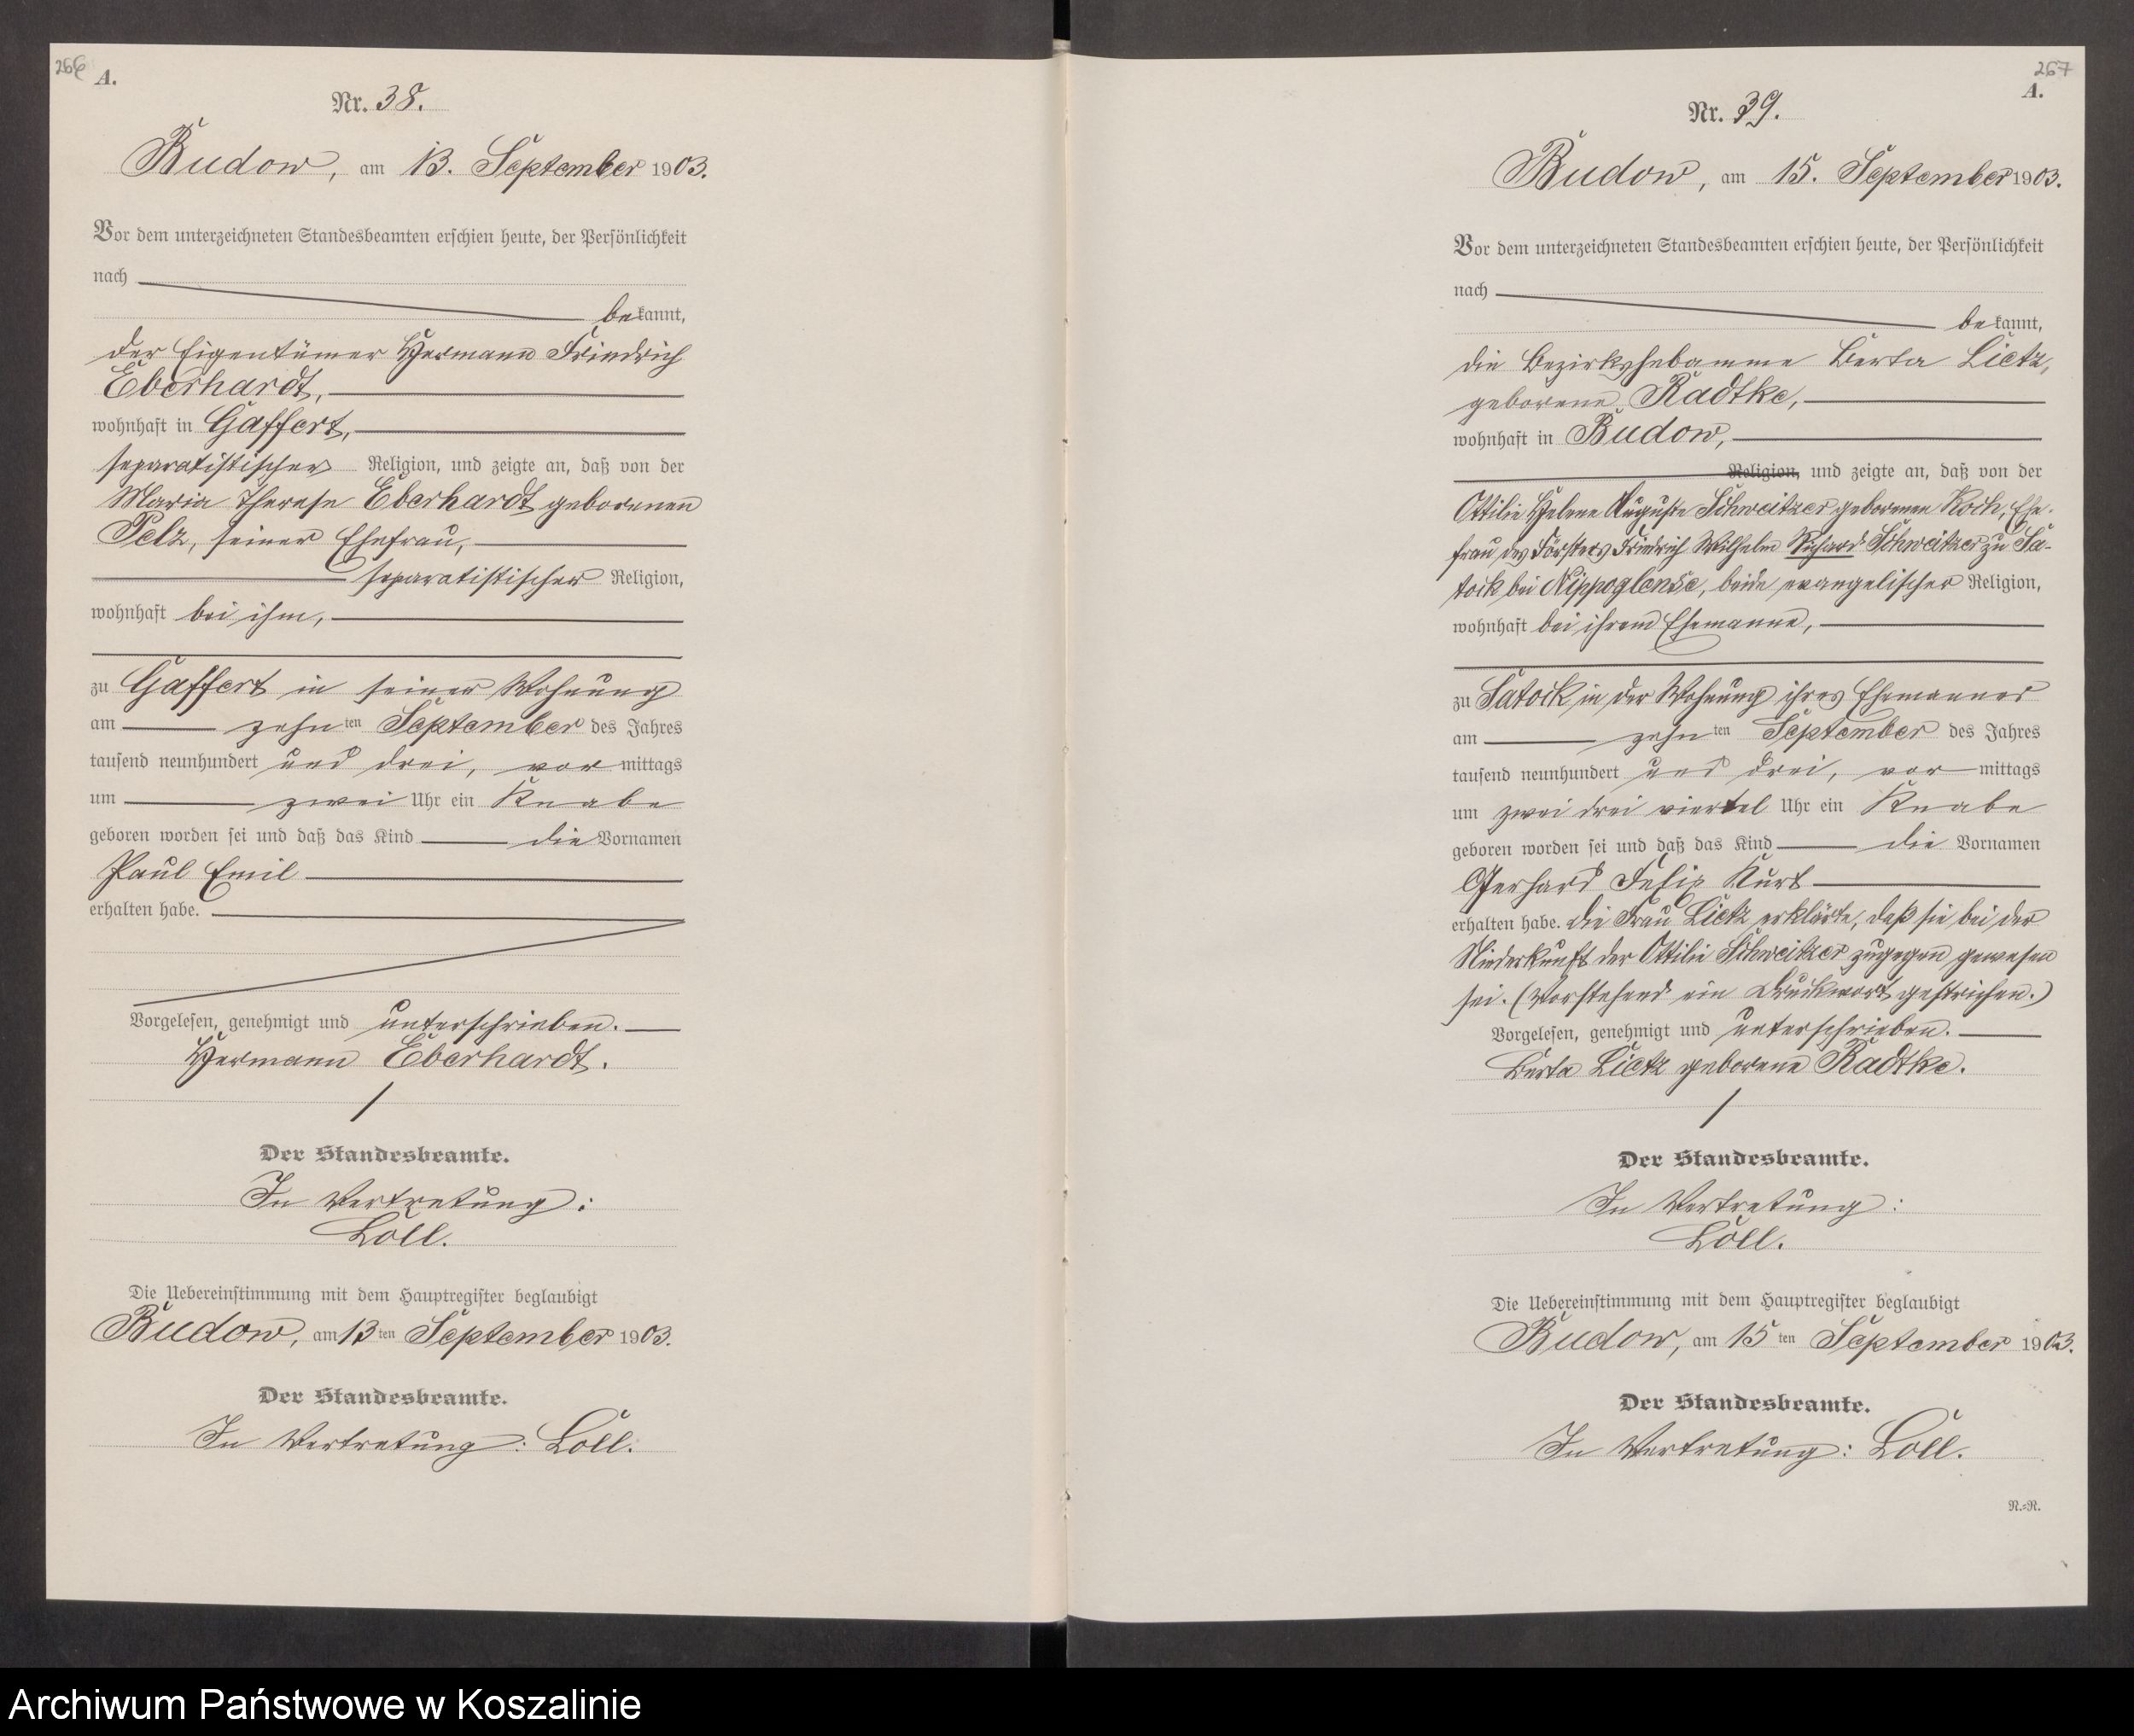 266
A.
Nr. 38.
Budow, am 13. September 1903.
Vor dem unterzeichneten Standesbeamten erschien heute, der Persönlichkeit
nach
bekannt,
der Eigentümer Hermann Friedrich
Eberhardt,
wohnhaft in Gaffert,
separatistischer Religion, und zeigte an, daß von der
Maria Therese Eberhardt geborenen
Pelz, seiner Ehefrau,
separatistischer Religion,
wohnhaft bei ihm,
zu Gaffert in seiner Wohnung
am zehnten September des Jahres
tausend neunhundert und drei, vormittags
um zwei Uhr ein Knabe
geboren worden sei und daß das Kind die Vornamen
Paul Emil
erhalten habe.
Vorgelesen, genehmigt und unterschrieben.
Hermann Eberhardt.
Der Standesbeamte.
In Vertretung:
Löll.
Die Uebereinstimmung mit dem Hauptregister beglaubigt
Budow, am 13ten September 1903.
Der Standesbeamte.
In Vertretung: Löll.
267
A.
Nr. 39.
Budow, am 15. September 1903.
Vor dem unterzeichneten Standesbeamten erschien heute, der Persönlichkeit
nach
bekannt,
die Bezirkshebamme Berta Lietz,
geborene Radtke,
wohnhaft in Budow,
Religion, und zeigte an, daß von der
Ottilie Helene Auguste Schweitzer geborenen Koch, Ehe-
frau des Försters Friedrich Wilhelm Richard Schweitzer zu Sa-
tock bei Nippoglense, beide evangelischer Religion,
wohnhaft bei ihrem Ehemanne,
zu Satock in der Wohnung ihres Ehemannes
am zehnten September des Jahres
tausend neunhundert und drei, vormittags
um zwei drei viertel Uhr ein Knabe
geboren worden sei und daß das Kind die Vornamen
Gerhard Felix Kurt
erhalten habe. Die Frau Lietz erklärte, daß sie bei der
Niederkunft der Ottilie Schweitzer zugegen gewesen
sei. (Vorstehend ein Druckwort gestrichen.)
Vorgelesen, genehmigt und unterschrieben.
Berta Lietz geborene Radtke.
Der Standesbeamte.
In Vertretung:
Löll.
Die Uebereinstimmung mit dem Hauptregister beglaubigt
Budow, am 15ten September 1903.
Der Standesbeamte.
In Vertretung: Löll.
R.=R.
Archiwum Państwowe w Koszalinie